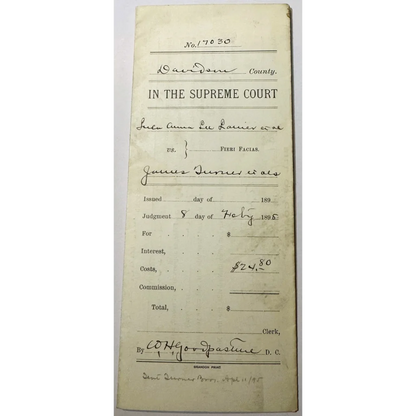 No. 17030
Davidson County.
IN THE SUPREME COURT
Anna et al
vs. } FIERI FACIAS.
James Turner et als
Issued day of 189
Judgment 8 day of Feby 1895
For $
Interest,
Costs, $24.80
Commission,
Total, $
Clerk,
By W. H. Goodpasture D. C.
Turner Bros.